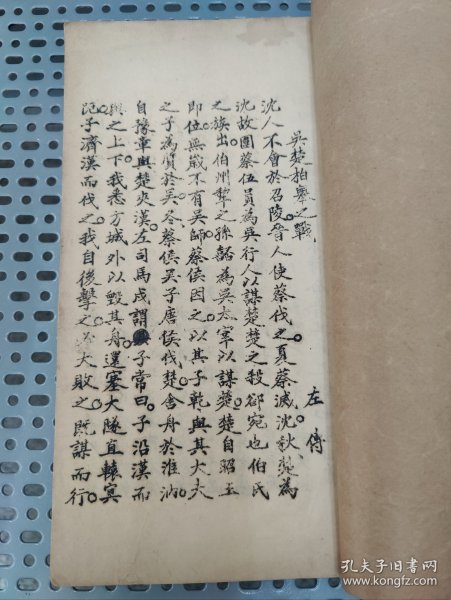 吳楚柏舉之戰
左傳
沈人不會於召陵。晉人使蔡伐之。夏蔡滅沈。秋楚為
沈故圍蔡伍員為吳行人以謀楚。楚之殺郤宛也伯氏
之族出。伯州犂之孫嚭為吳太宰以謀楚。楚自昭王
即位。無歲不有吳師。蔡侯因之。以其子乾與其大夫
之子為質於吳。冬蔡侯吳子唐侯伐楚。舍舟於淮汭。
自豫章與楚夾漢。左司馬戌謂子常曰。子沿漢而
與之上下。我悉方城外以毀其舟。還塞大隧直轅冥
阨。子濟漢而伐之。我自後擊之。必大敗之。既謀而行。
孔夫子旧书网
www.kongfz.com